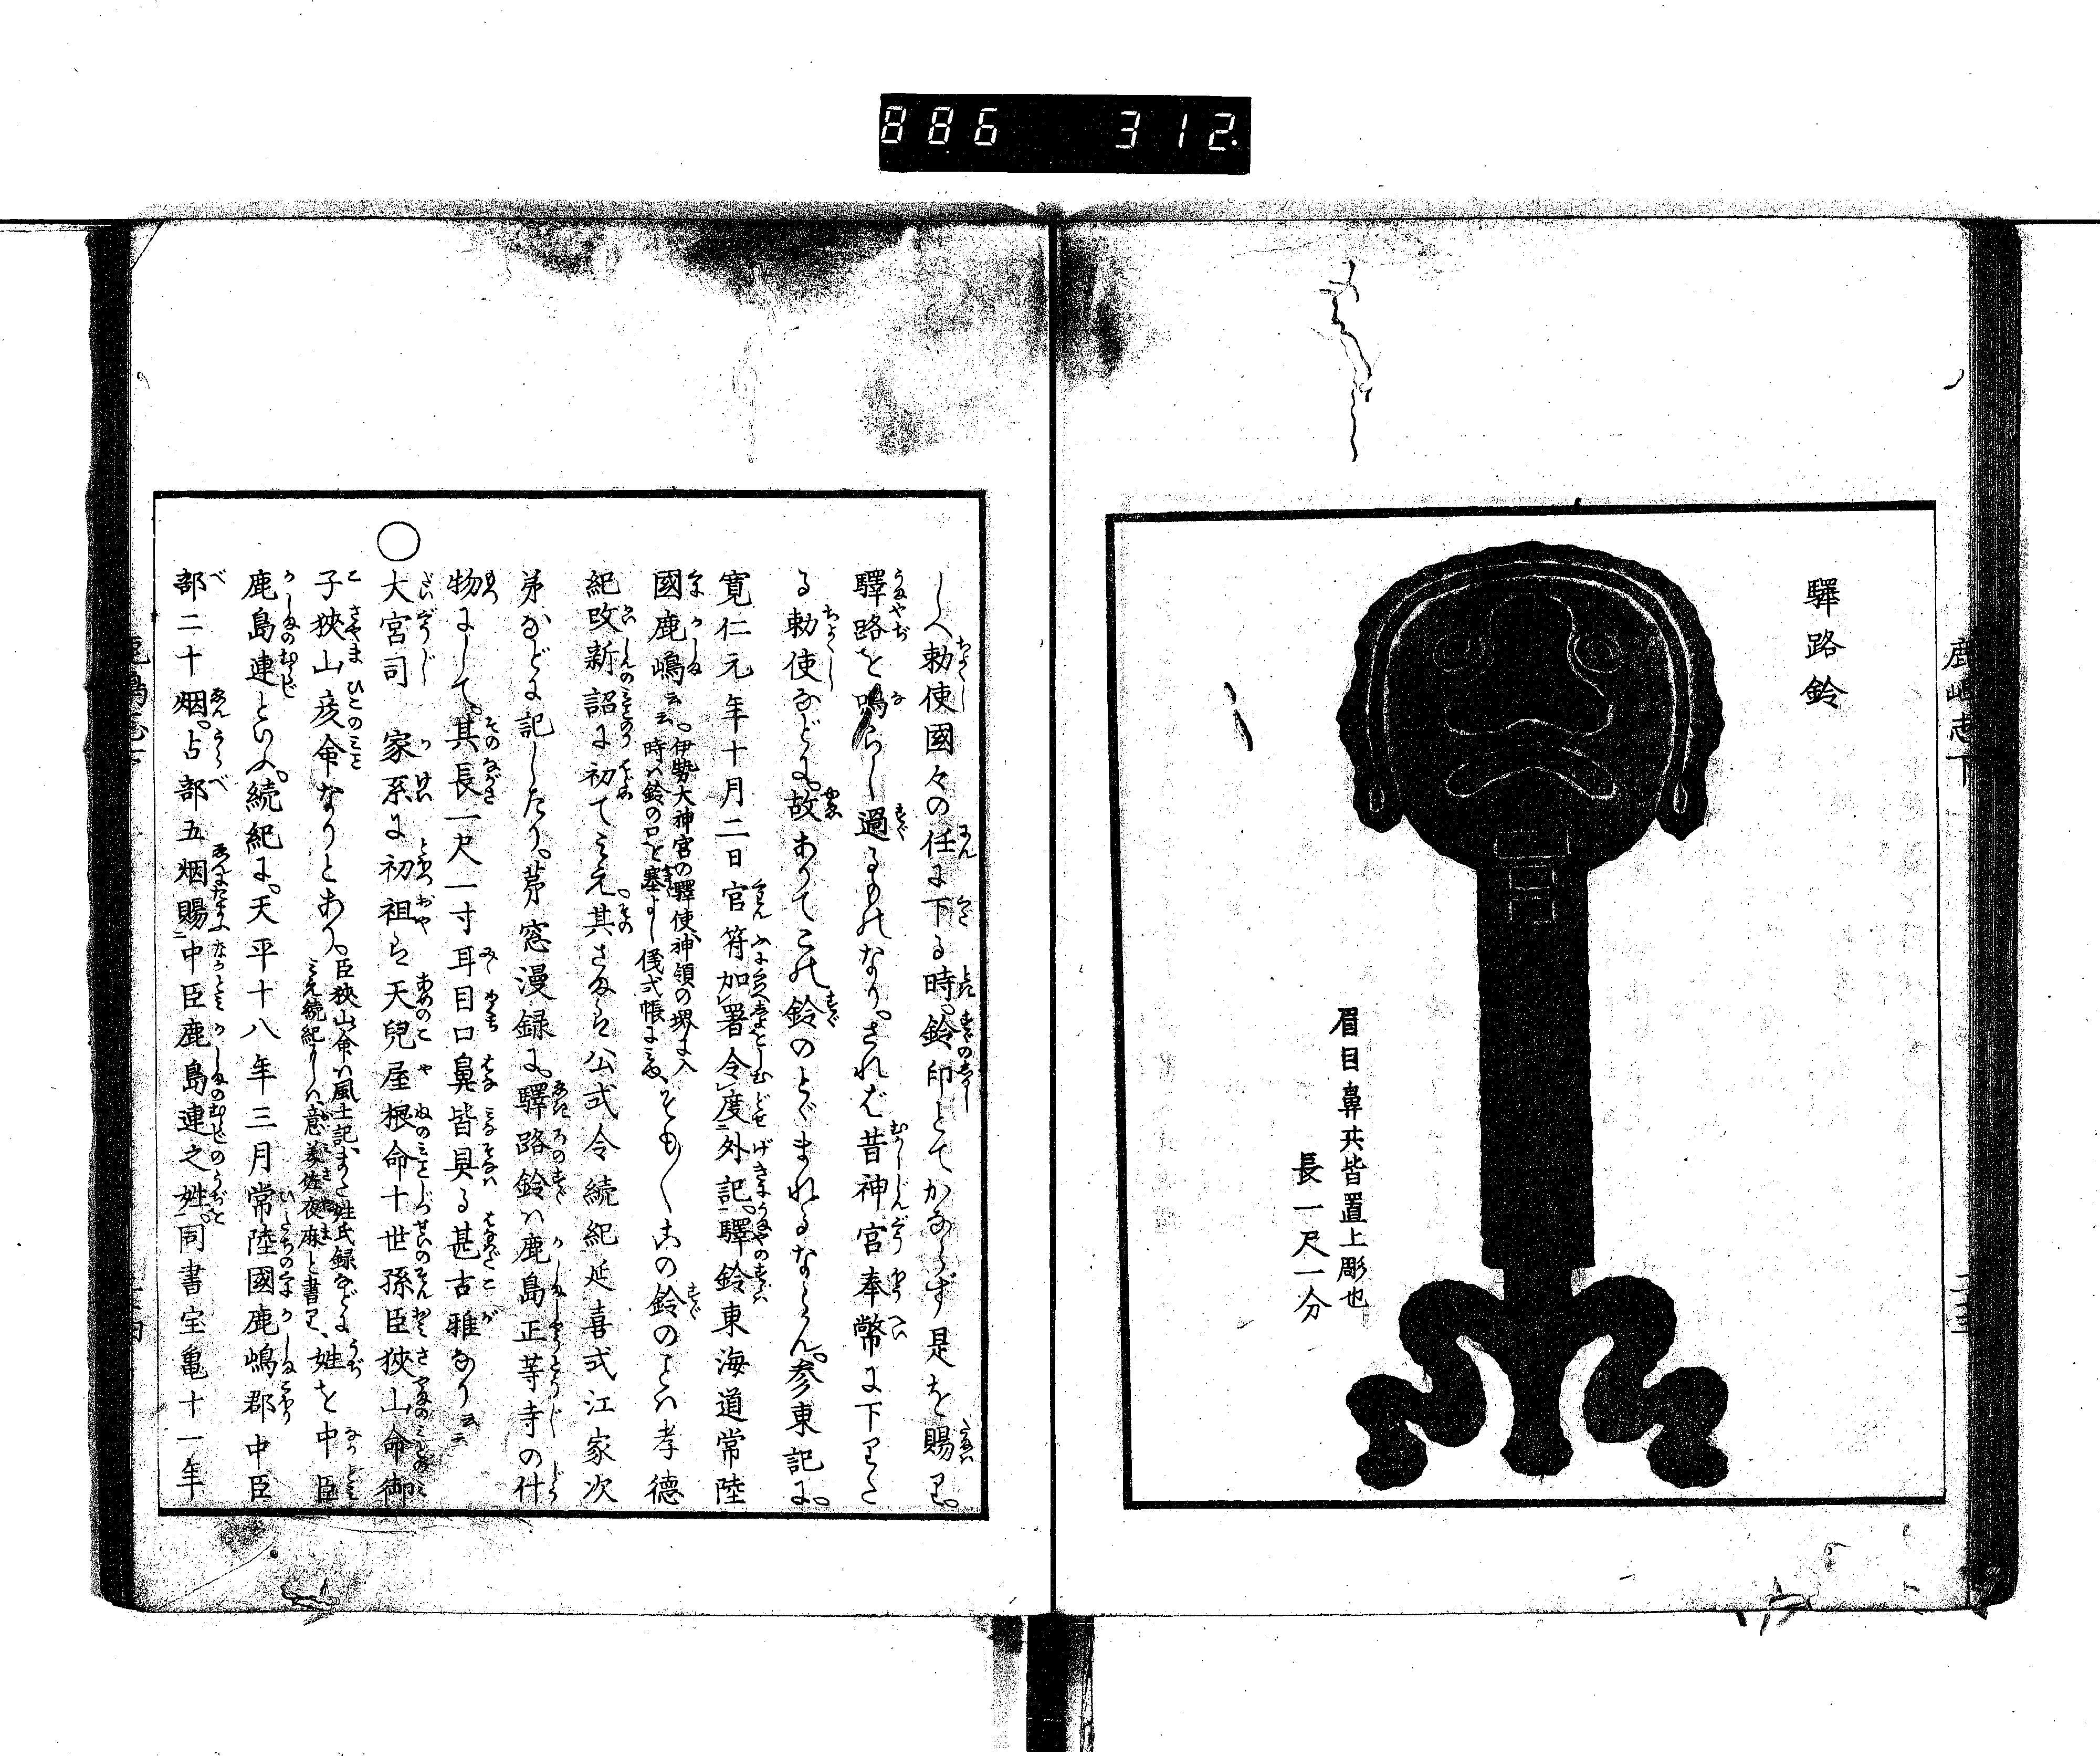 886 312.
驛路鈴
眉目鼻共皆置上彫也
長一尺一分
鹿嶋志下
しへ勅使國々の任に下る時。鈴印とてかならず是を賜り。
驛路を鳴らし過るものなり。されば昔神宮奉幣に下りた
る勅使などに。故ありてこの鈴のとゞまれるならん。参東記に。
寛仁元年十月二日官符加署令度外記。驛鈴東海道常陸
國鹿嶋云云。
伊勢大神宮の驛使神領の堺に入
時ハ鈴の口を塞よし儀式帳にミゆ、
そも〳〵この鈴のことハ孝徳
紀改新詔に初てミえ。其さまハ公式令続紀延喜式江家次
第などに記したり。茅窓漫録に。驛路鈴ハ鹿島正等寺の什
物にして。其長一尺一寸耳目口鼻皆具る甚古雅なり云云
○大宮司 家系に初祖ハ天兒屋根命十世孫臣狹山命御
子狹山彦命なりとあり。
臣狹山命ハ風土記、また姓氏録などに
ミえ続紀にハ、意美佐夜麻と書り、
姓を中臣
鹿島連といふ。続紀に。天平十八年三月常陸國鹿嶋郡中臣
部二十烟。占部五烟賜中臣鹿島連之姓。同書宝亀十一年